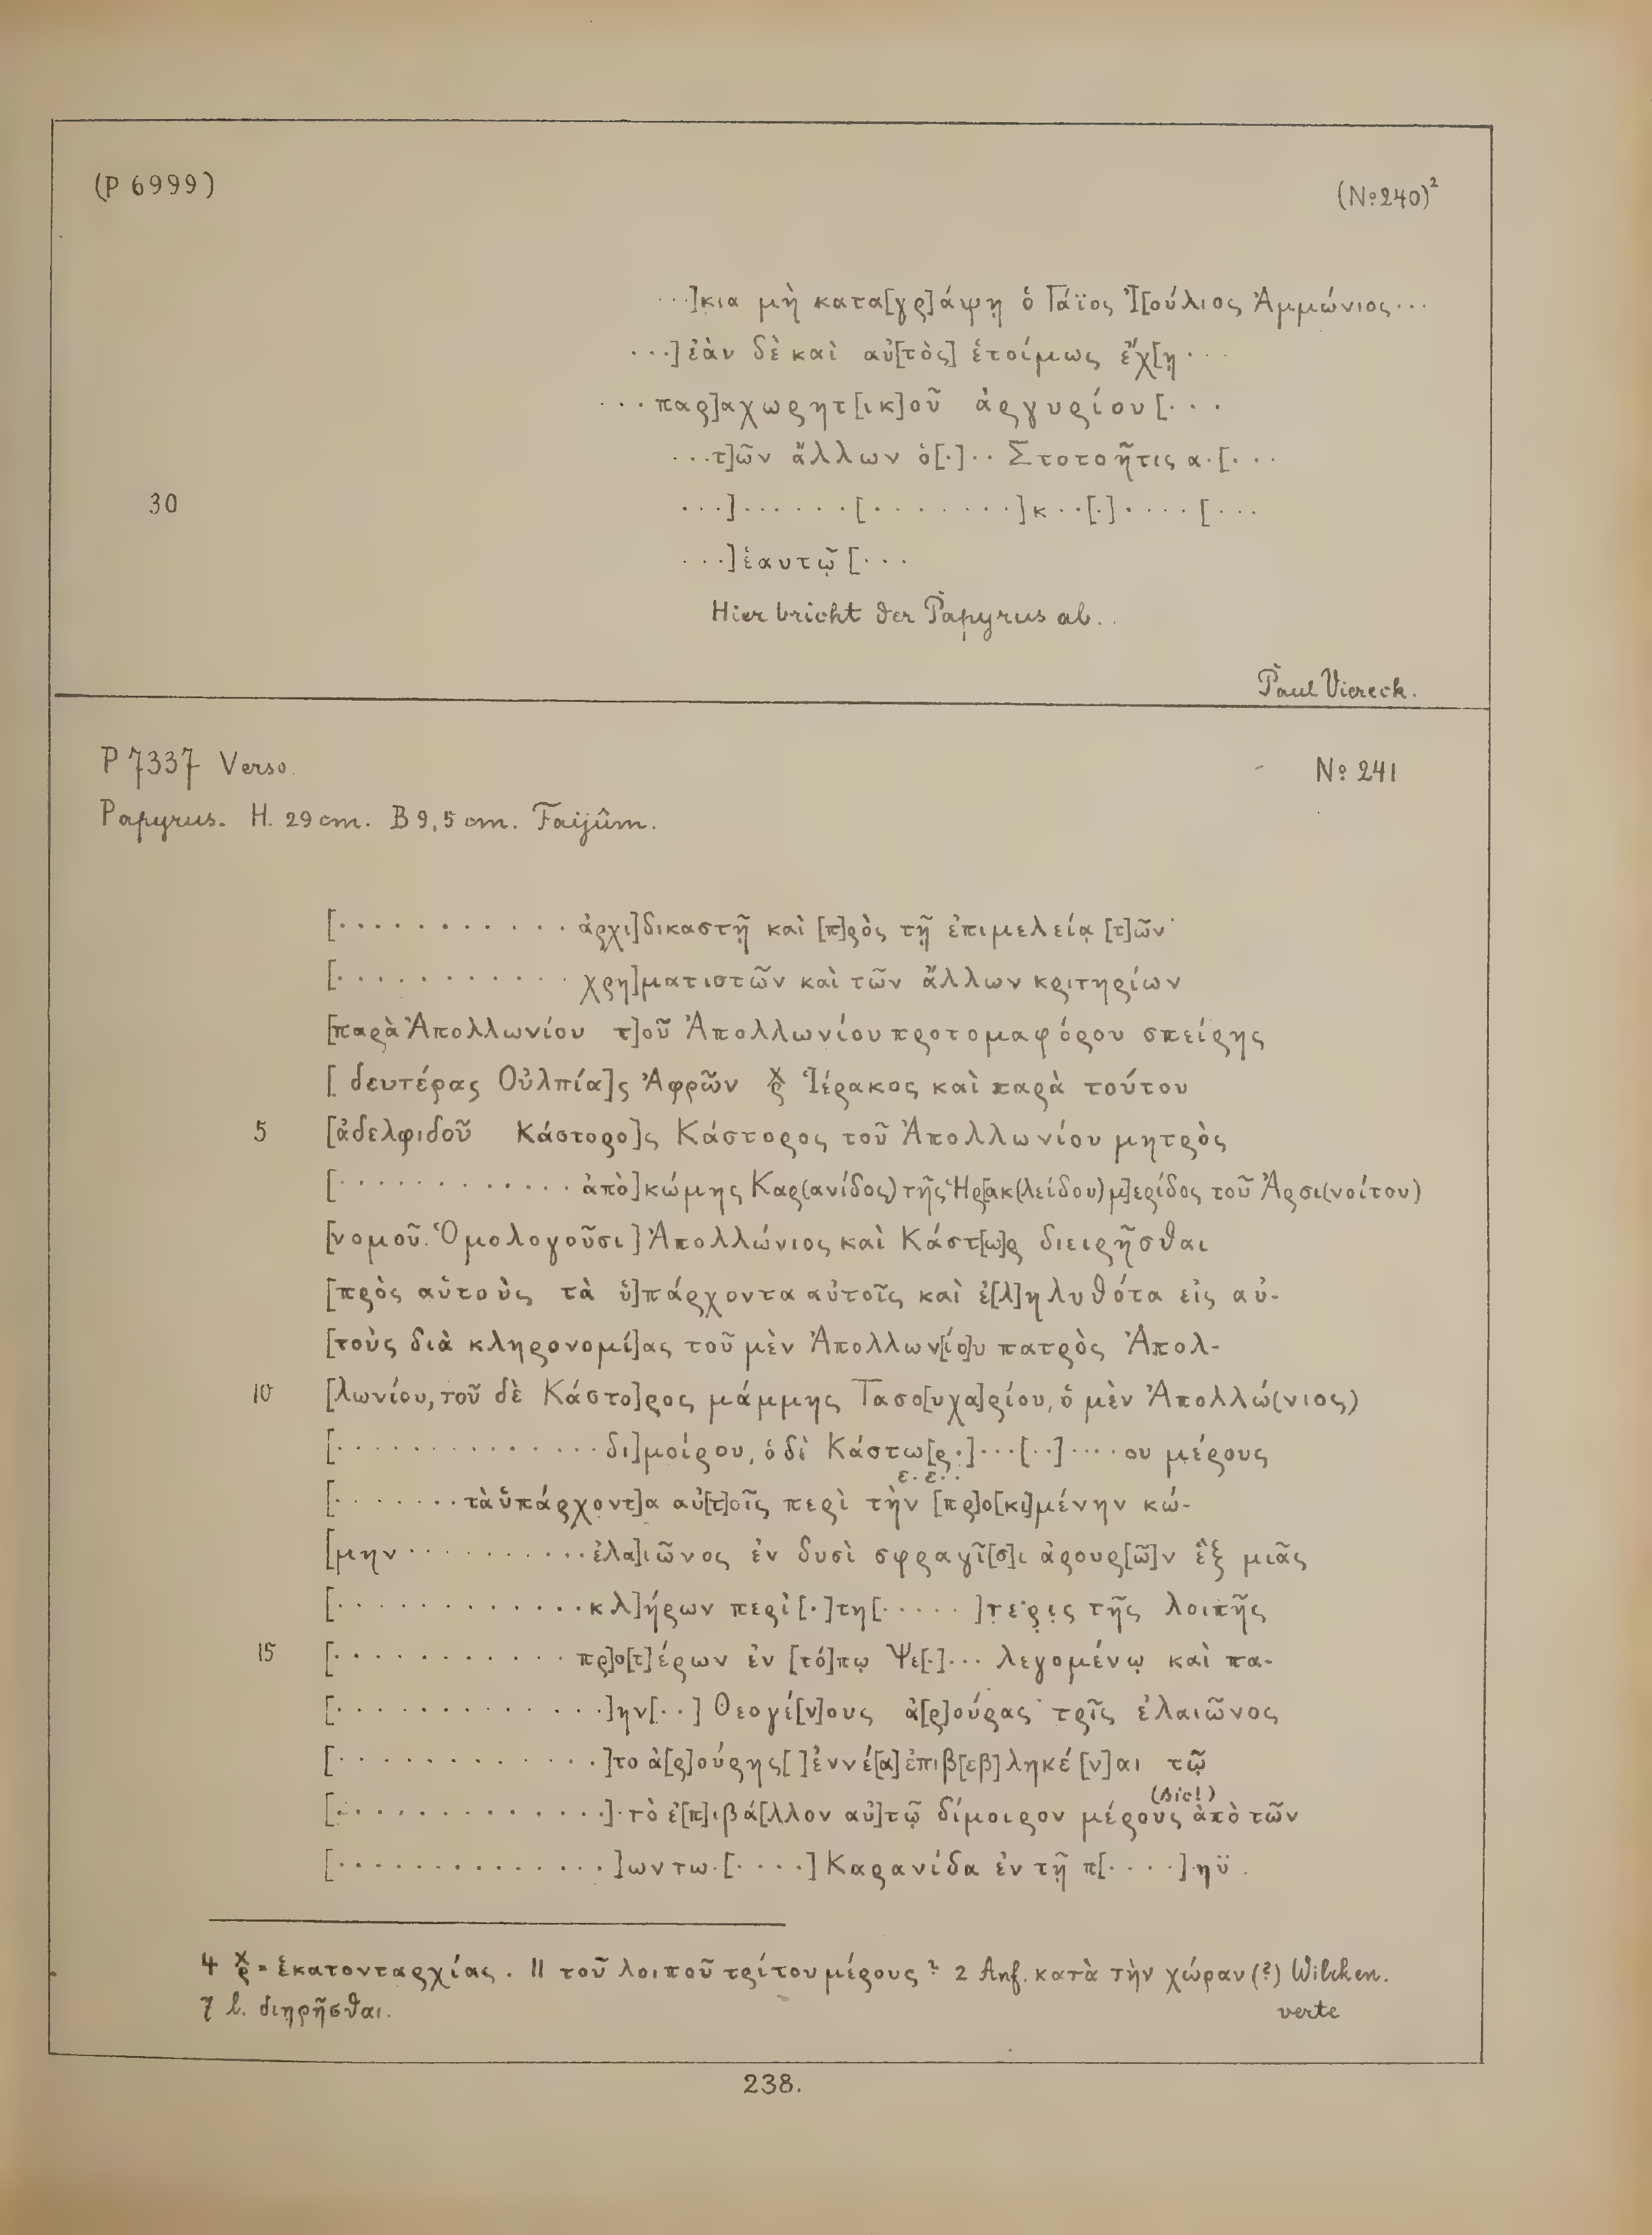 (P 6999) (No 240)²
···]κια μὴ κατα[γρ]άψῃ ὁ Γάϊος Ἰ[ούλιος Ἀμμώνιος···
···]ἐὰν δὲ καὶ αὐ[τὸς] ἑτοίμως ἔχ[ῃ···
···παρ]αχωρητ[ικ]οῦ ἀργυρίου[···
···τ]ῶν ἄλλων ὁ[·]·· Στοτοῆτις α·[···
30 ···]······[········]κ··[·]····[···
···]ἑαυτῷ[···
Hier bricht der Papyrus ab.
Paul Viereck.
P 7337 Verso. No 241
Papyrus. H. 29 cm. B 9,5 cm. Faijûm.
[············ἀρχι]δικαστῇ καὶ [π]ρὸς τῇ ἐπιμελείᾳ [τ]ῶν
[············χρη]ματιστῶν καὶ τῶν ἄλλων κριτηρίων
[παρὰ Ἀπολλωνίου τ]οῦ Ἀπολλωνίου προτομαφόρου σπείρης
[δευτέρας Οὐλπία]ς Ἀφρῶν χρ Ἱέρακος καὶ παρὰ τούτου
5 [ἀδελφιδοῦ Κάστορο]ς Κάστορος τοῦ Ἀπολλωνίου μητρὸς
[·············ἀπὸ]κώμης Καρ(ανίδος) τῆς Ἡρ[ακ(λείδου) μ]ερίδος τοῦ Ἀρσι(νοίτου)
[νομοῦ. Ὁμολογοῦσι] Ἀπολλώνιος καὶ Κάστ[ω]ρ διειρῆσθαι
[πρὸς αὑτοὺς τὰ ὑ]πάρχοντα αὐτοῖς καὶ ἐ[λ]ηλυθότα εἰς αὐ-
[τοὺς διὰ κληρονομί]ας τοῦ μὲν Ἀπολλων[ίο]υ πατρὸς Ἀπολ-
10 [λωνίου, τοῦ δὲ Κάστο]ρος μάμμης Τασο[υχα]ρίου, ὁ μὲν Ἀπολλώ(νιος)
[··············δι]μοίρου, ὁ δὲ Κάστω[ρ·]···[··]····ου μέρους
ε·ε··
[·······τὰ ὑπάρχοντ]α αὐ[τ]οῖς περὶ τὴν [πρ]ο[κι]μένην κώ-
[μην··········ἐλα]ιῶνος ἐν δυσὶ σφραγῖ[σ]ι ἀρουρ[ῶ]ν ἓξ μιᾶς
[·············κλ]ήρων περὶ[·]τη[·····]τερις τῆς λοιπῆς
15 [············πρ]ο[τ]έρων ἐν [τό]πῳ Ψε[·]··· λεγομένῳ καὶ πα-
[··············]ην[··] Θεογέ[ν]ους ἀ[ρ]ούρας τρῖς ἐλαιῶνος
[··············]το ἀ[ρ]ούρης[ ]ἐννέ[α]ἐπιβ[εβ]ληκέ[ν]αι τῷ
(sic!)
[··············]·τὸ ἐ[π]ιβά[λλον αὐ]τῷ δίμοιρον μέρους ἀπὸ τῶν
[··············]ωντω·[····] Καρανίδα ἐν τῇ π[····]ηϋ·
4 χρ = ἑκατονταρχίας. 11 τοῦ λοιποῦ τρίτου μέρους? 2 Anf. κατὰ τὴν χώραν (?) Wilcken.
7 l. διηρῆσθαι. verte
238.